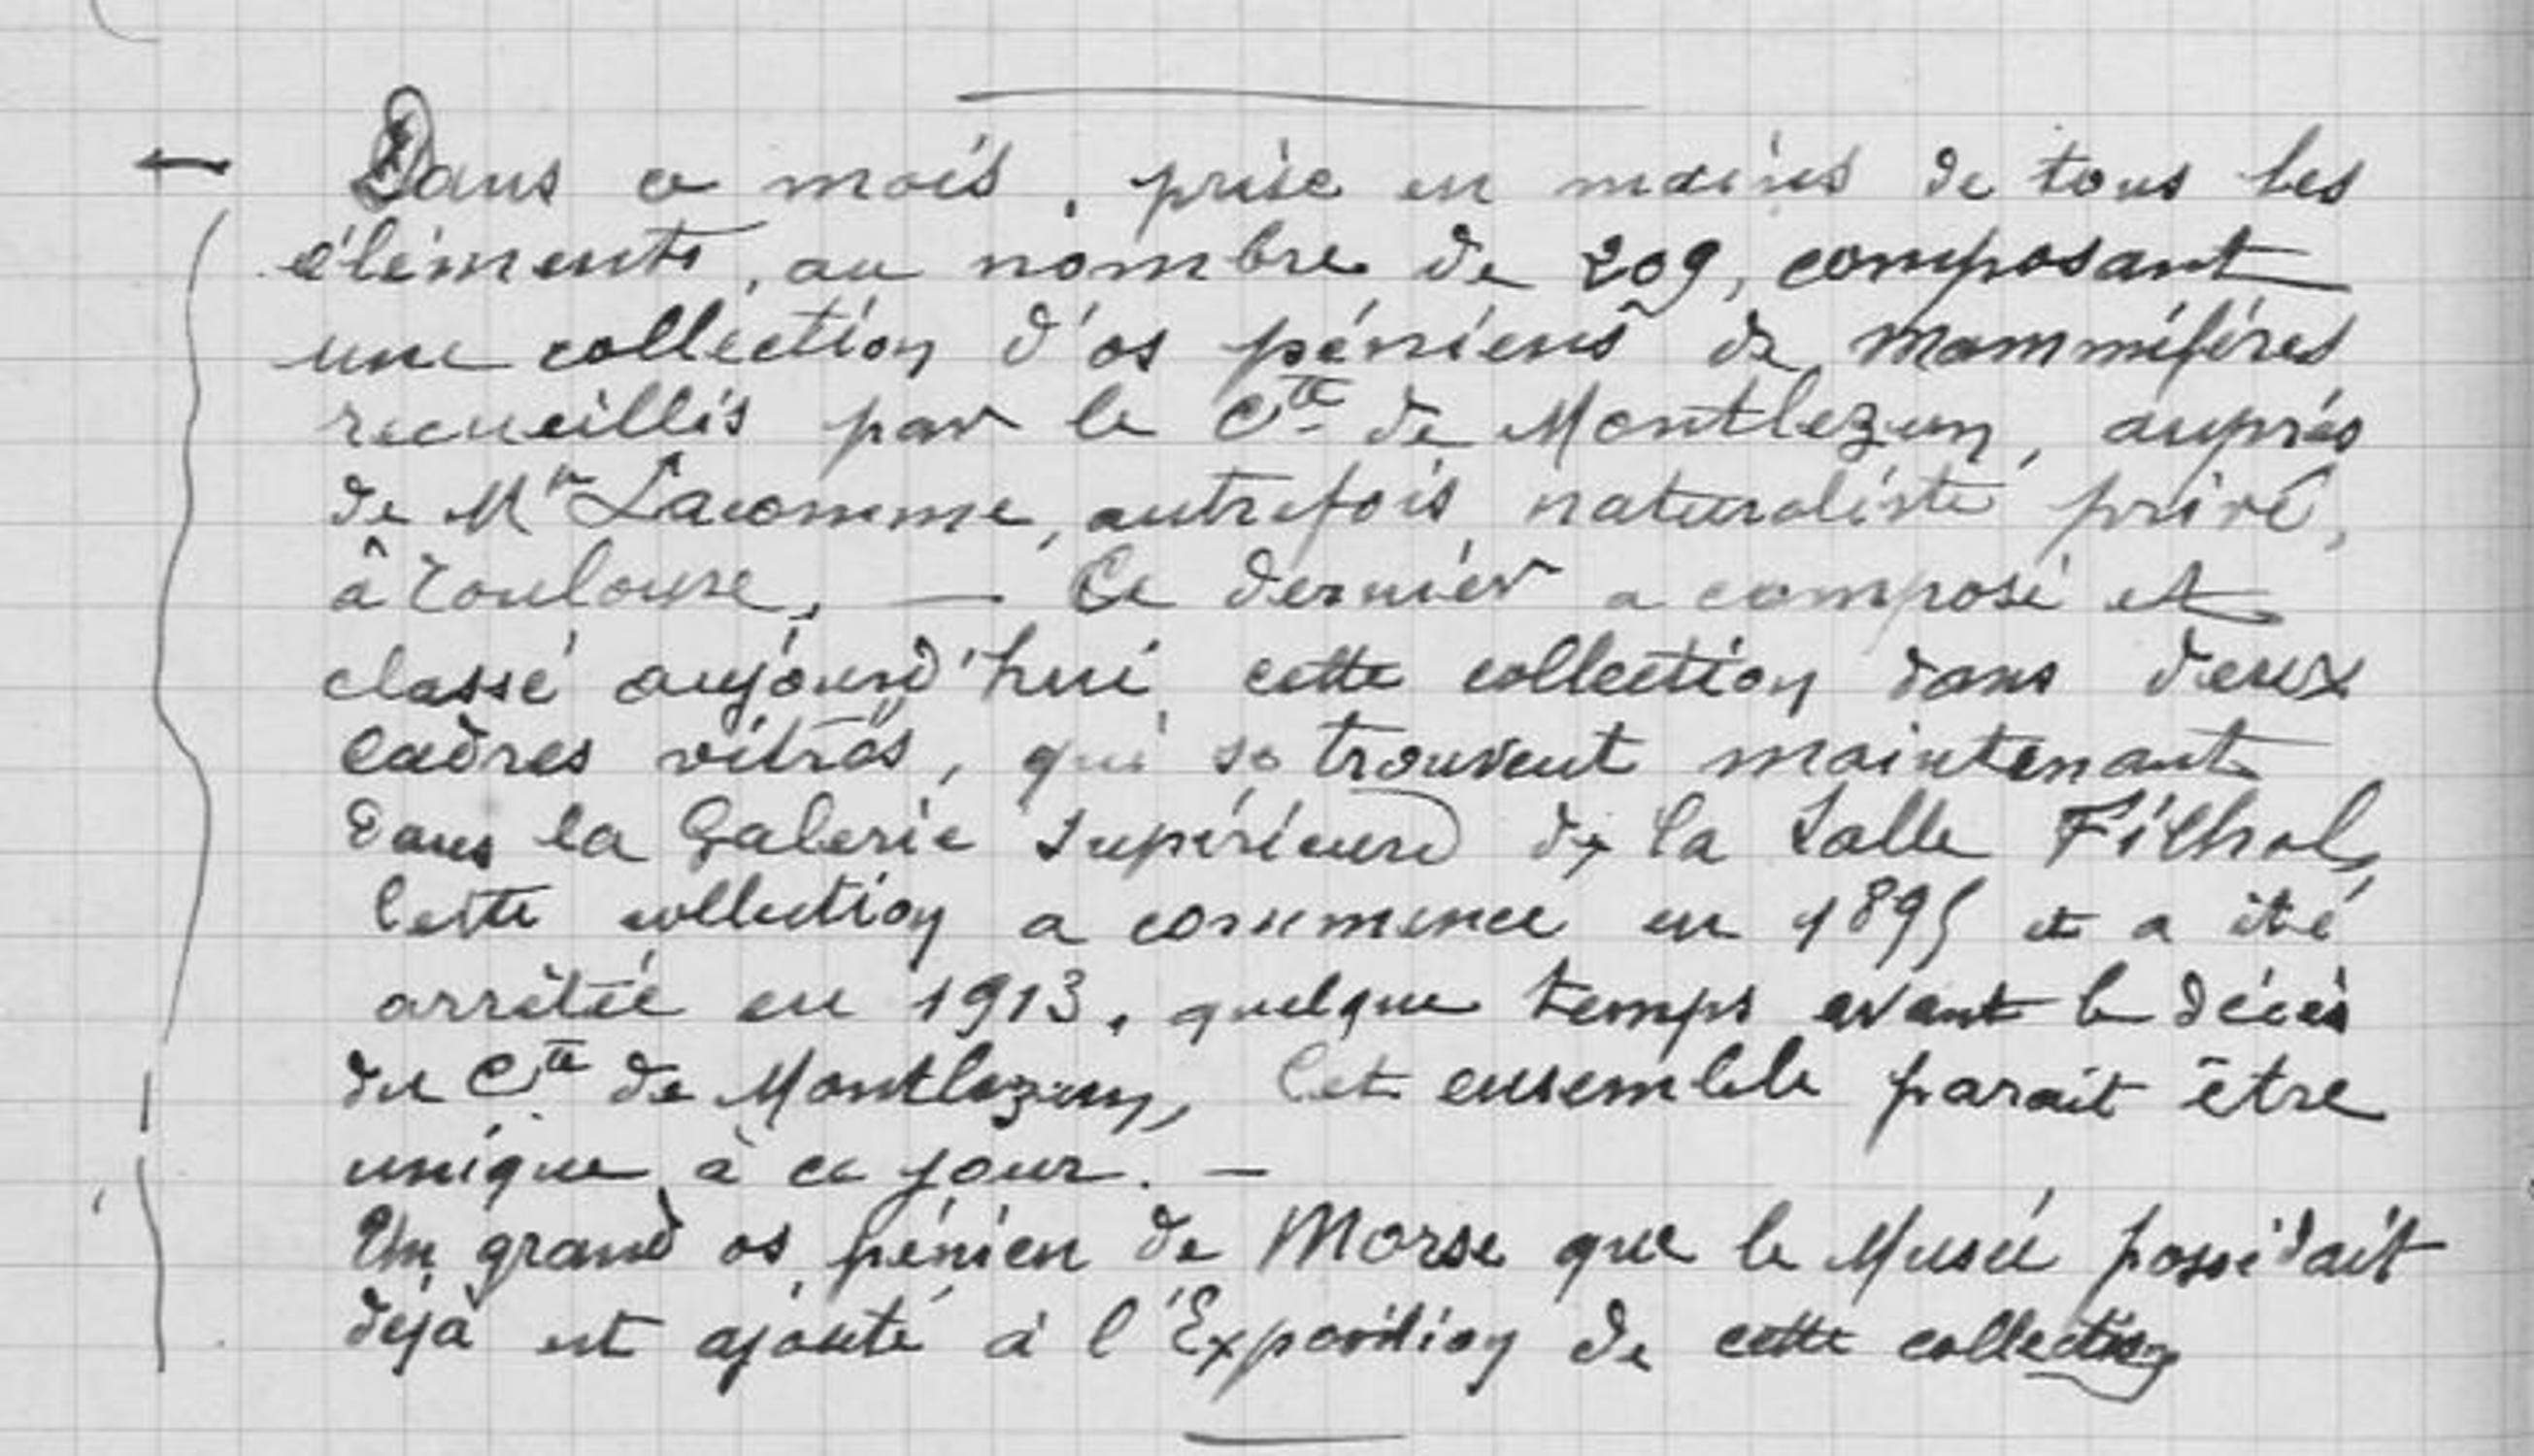 Dans ce mois, prise en mains de tous les
éléments, au nombre de 209, composant
une collection d'os péniens de Mammifères
recueillis par le Cte de Montlezun, auprès
de Mr Lacomme, autrefois naturaliste privé,
à Toulouse. — Ce dernier a composé et
classé aujourd'hui cette collection dans deux
cadres vitrés, qui se trouvent maintenant
dans la Galerie supérieure de la Salle Filhol,
Cette collection a commencé en 1895 et a été
arrêtée en 1913, quelque temps avant le décès
du Cte de Montlezun, Cet ensemble parait être
unique à ce jour. —
Un grand os pénien de Morse que le Musée possédait
déjà est ajouté à l'Exposition de cette collection